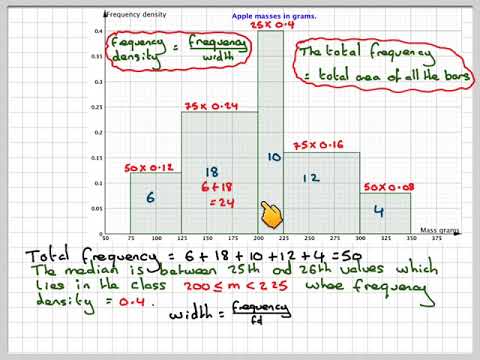 Frequency density
Apple masses in grams.
25 x 0.4
Fequency density = frequency / width
The total frequency
= total area of all the bars
0.4
0.35
0.3
0.25
0.2
0.15
0.1
0.05
0
75 x 0.24
75 x 0.16
50 x 0.12
50 x 0.08
6
18
6+18
=24
10
12
4
50
75
100
125
150
175
200
225
250
275
300
325
350
375
400
Mass grams
Total frequency = 6 + 18 + 10 + 12 + 4 = 50
The median is between 25th and 26th values which
lies in the class 200 ≤ m < 225 whose frequency
density = 0.4.
width = frequency / fd